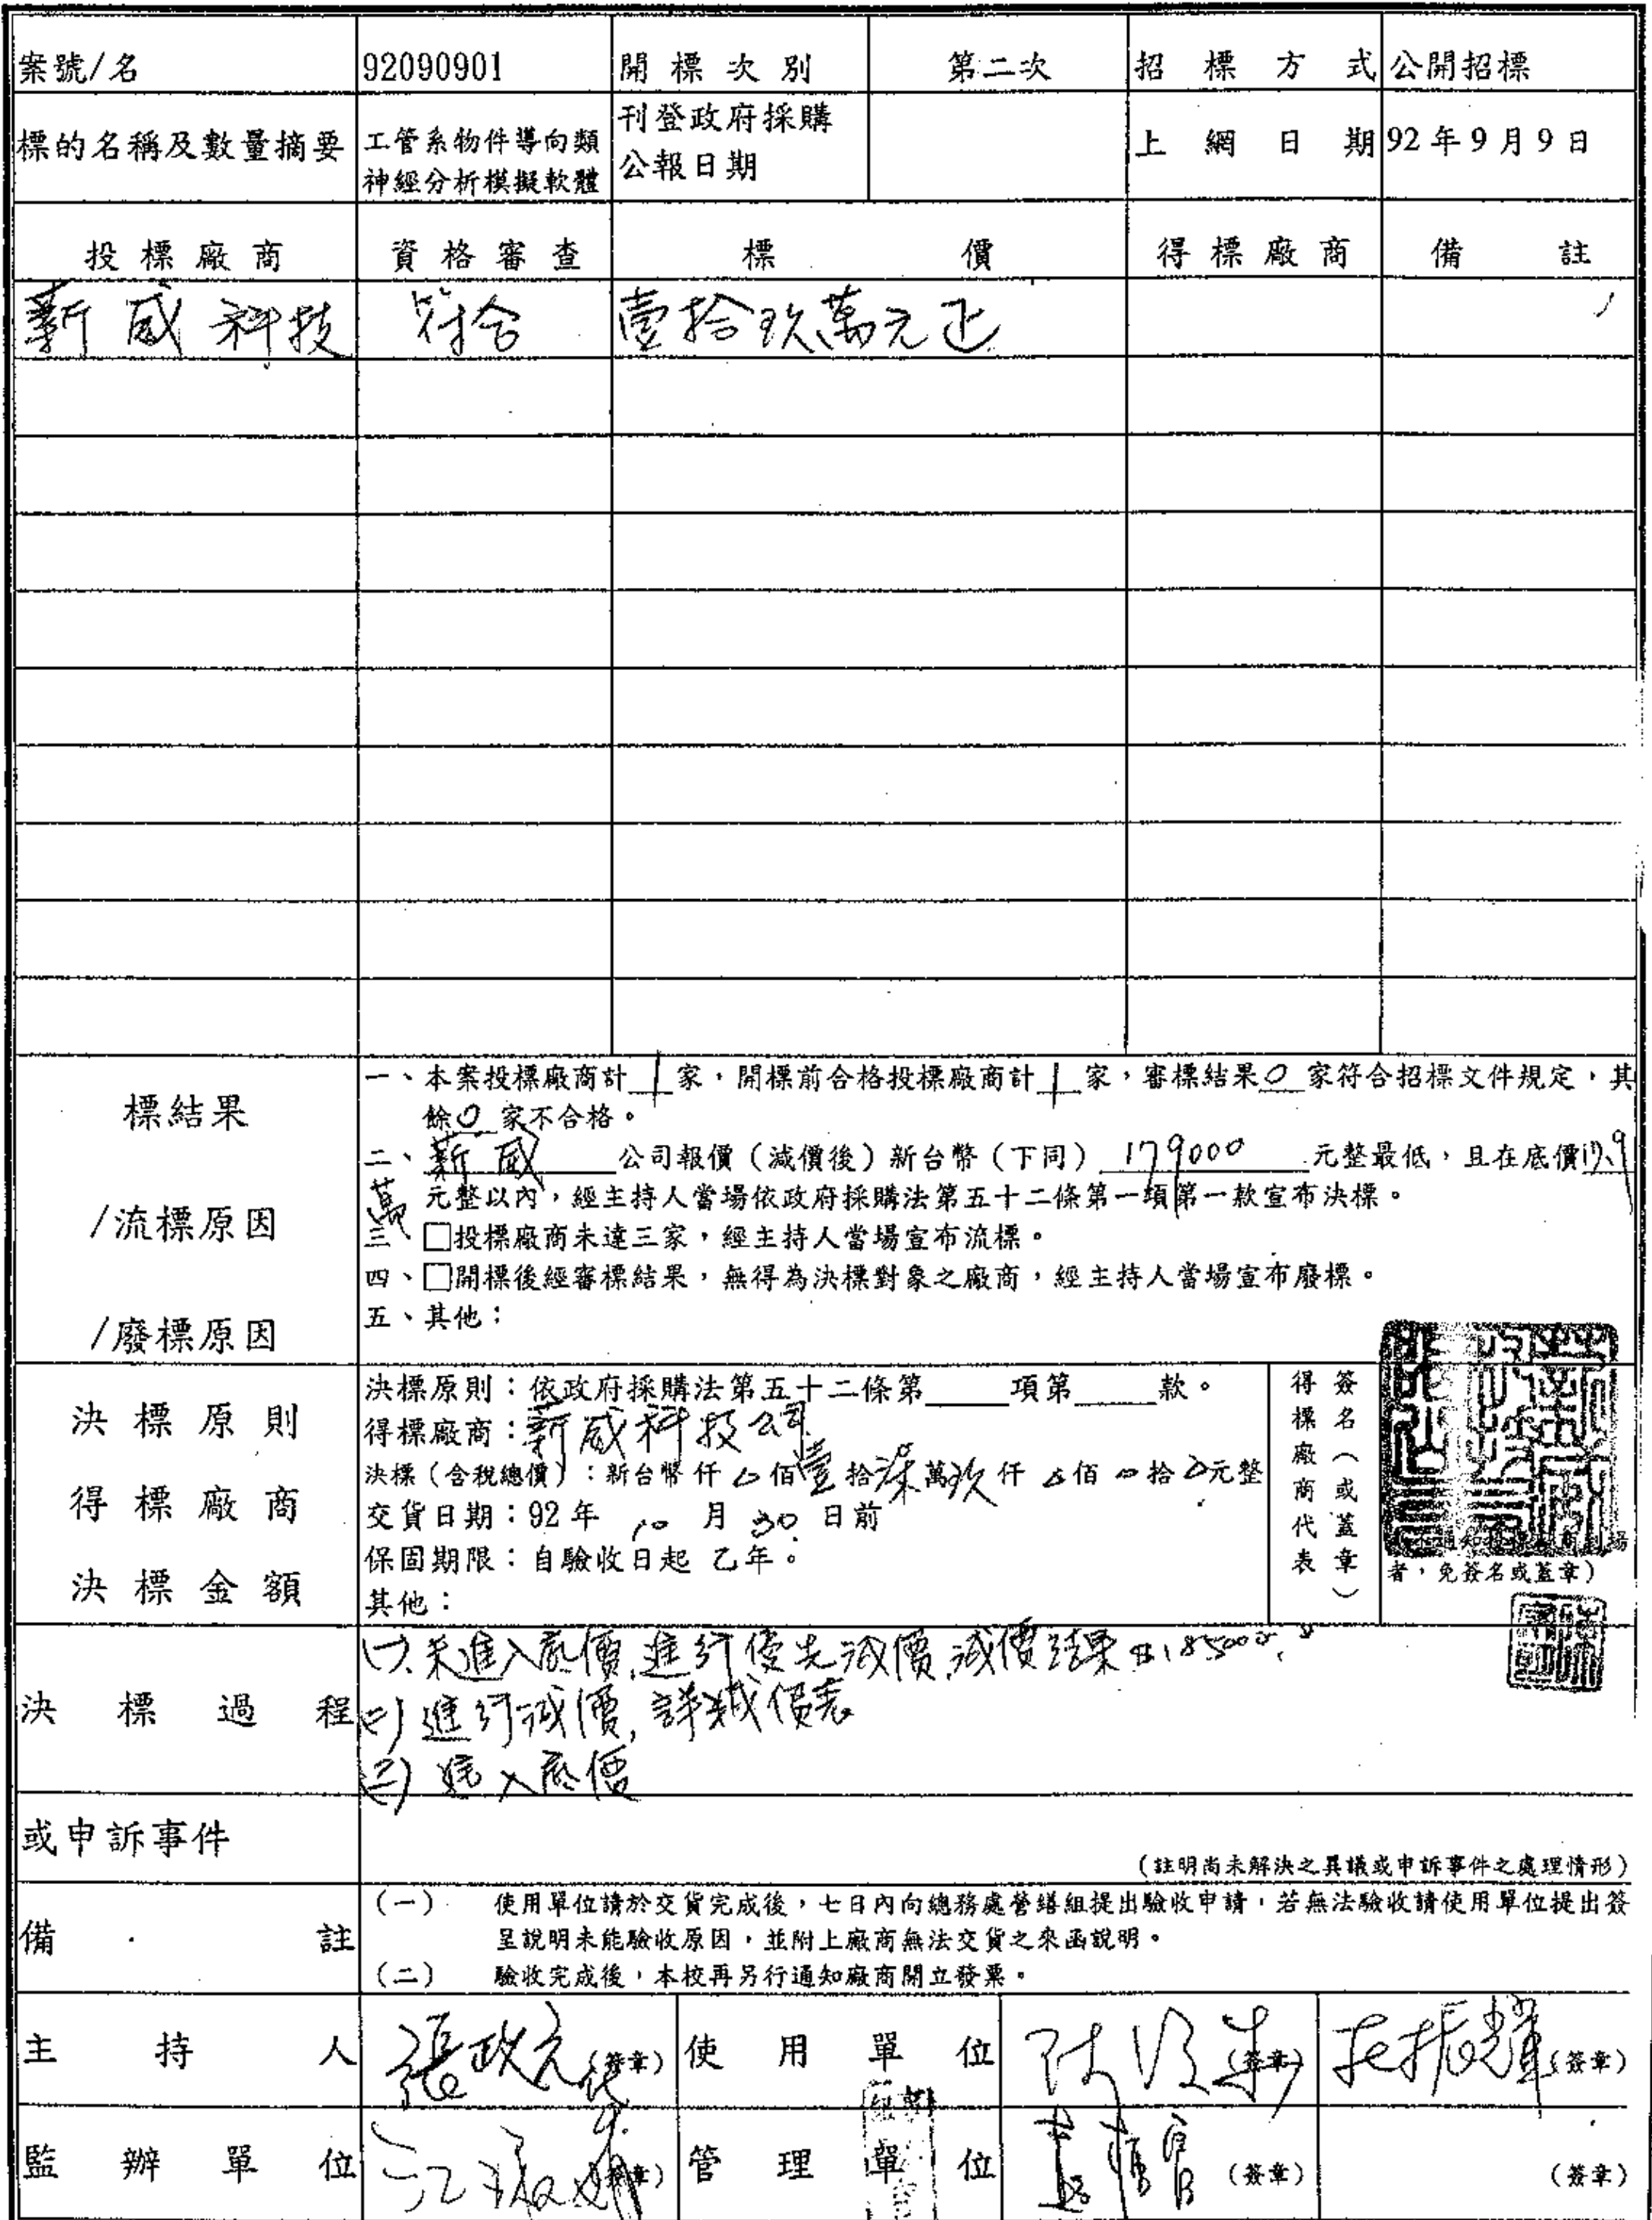 案號/名 92090901 開標次別 第二次 招標方式 公開招標
標的名稱及數量摘要 工管系物件導向類神經分析模擬軟體 刊登政府採購公報日期 上網日期 92年9月9日
投標廠商 資格審查 標價 得標廠商 備註
新威科技 符合 壹拾玖萬元正
標結果
/流標原因
/廢標原因
一、本案投標廠商計 1 家，開標前合格投標廠商計 1 家，審標結果 0 家符合招標文件規定，其
餘 0 家不合格。
二、新威 公司報價（減價後）新台幣（下同） 179000 元整最低，且在底價17.9
萬元整以內，經主持人當場依政府採購法第五十二條第一項第一款宣布決標。
三、□投標廠商未達三家，經主持人當場宣布流標。
四、□開標後經審標結果，無得為決標對象之廠商，經主持人當場宣布廢標。
五、其他：
決標原則
得標廠商
決標金額
決標原則：依政府採購法第____項第____款。
得標廠商：新威科技公司
決標（含稅總價）：新台幣 仟 0 佰 壹 拾 柒 萬 玖 仟 0 佰 0 拾 0 元整
交貨日期：92年 10 月 30 日前
保固期限：自驗收日起 乙年。
其他：
得標廠商代表
簽名（或蓋章）
者，免簽名或蓋章）
決標過程
(一)未進入底價,進行優先減價,減價結果185000.
(二)進行減價,詳減價表
(三)進入底價
或申訴事件
（註明尚未解決之異議或申訴事件之處理情形）
備註
（一） 使用單位請於交貨完成後，七日內向總務處營繕組提出驗收申請，若無法驗收請使用單位提出簽
呈說明未能驗收原因，並附上廠商無法交貨之來函說明。
（二） 驗收完成後，本校再另行通知廠商開立發票。
主持人 張政元 (簽章) 使用單位 (簽章) 振輝 (簽章)
監辦單位 (簽章) 管理單位 (簽章) (簽章)